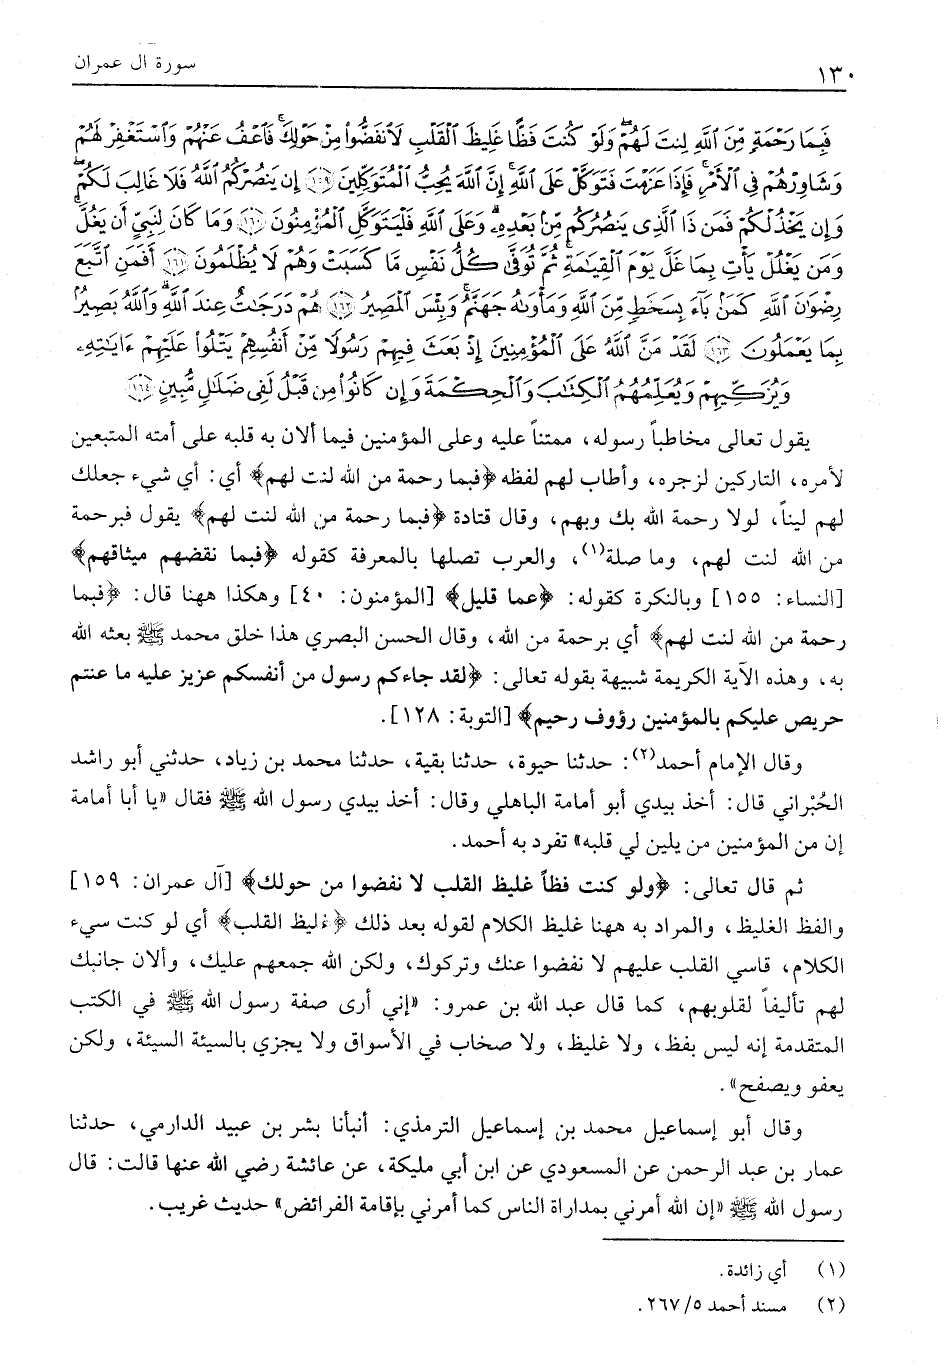 سورة آل عمران
١٣٠
فَبِمَا رَحْمَةٍ مِّنَ ٱللَّهِ لِنتَ لَهُمْ ۖ وَلَوْ كُنتَ فَظًّا غَلِيظَ ٱلْقَلْبِ لَٱنفَضُّوا۟ مِنْ حَوْلِكَ ۖ فَٱعْفُ عَنْهُمْ وَٱسْتَغْفِرْ لَهُمْ
وَشَاوِرْهُمْ فِى ٱلْأَمْرِ ۖ فَإِذَا عَزَمْتَ فَتَوَكَّلْ عَلَى ٱللَّهِ ۚ إِنَّ ٱللَّهَ يُحِبُّ ٱلْمُتَوَكِّلِينَ ١٥٩ إِن يَنصُرْكُمُ ٱللَّهُ فَلَا غَالِبَ لَكُمْ ۖ
وَإِن يَخْذُلْكُمْ فَمَن ذَا ٱلَّذِى يَنصُرُكُم مِّنۢ بَعْدِهِۦ ۗ وَعَلَى ٱللَّهِ فَلْيَتَوَكَّلِ ٱلْمُؤْمِنُونَ ١٦٠ وَمَا كَانَ لِنَبِىٍّ أَن يَغُلَّ ۚ
وَمَن يَغْلُلْ يَأْتِ بِمَا غَلَّ يَوْمَ ٱلْقِيَٰمَةِ ۚ ثُمَّ تُوَفَّىٰ كُلُّ نَفْسٍ مَّا كَسَبَتْ وَهُمْ لَا يُظْلَمُونَ ١٦١ أَفَمَنِ ٱتَّبَعَ
رِضْوَٰنَ ٱللَّهِ كَمَنۢ بَآءَ بِسَخَطٍ مِّنَ ٱللَّهِ وَمَأْوَىٰهُ جَهَنَّمُ ۚ وَبِئْسَ ٱلْمَصِيرُ ١٦٢ هُمْ دَرَجَٰتٌ عِندَ ٱللَّهِ ۗ وَٱللَّهُ بَصِيرٌۢ
بِمَا يَعْمَلُونَ ١٦٣ لَقَدْ مَنَّ ٱللَّهُ عَلَى ٱلْمُؤْمِنِينَ إِذْ بَعَثَ فِيهِمْ رَسُولًا مِّنْ أَنفُسِهِمْ يَتْلُوا۟ عَلَيْهِمْ ءَايَٰتِهِۦ
وَيُزَكِّيهِمْ وَيُعَلِّمُهُمُ ٱلْكِتَٰبَ وَٱلْحِكْمَةَ وَإِن كَانُوا۟ مِن قَبْلُ لَفِى ضَلَٰلٍ مُّبِينٍ ١٦٤
يقول تعالى مخاطباً رسوله، ممتناً عليه وعلى المؤمنين فيما ألان به قلبه على أمته المتبعين
لأمره، التاركين لزجره، وأطاب لهم لفظه ﴿فبما رحمة من الله لنت لهم﴾ أي: أي شيء جعلك
لهم ليناً، لولا رحمة الله بك وبهم، وقال قتادة ﴿فبما رحمة من الله لنت لهم﴾ يقول فبرحمة
من الله لنت لهم، وما صلة(١)، والعرب تصلها بالمعرفة كقوله ﴿فبما نقضهم ميثاقهم﴾
[النساء: ١٥٥] وبالنكرة كقوله: ﴿عما قليل﴾ [المؤمنون: ٤٠] وهكذا ههنا قال: ﴿فبما
رحمة من الله لنت لهم﴾ أي برحمة من الله، وقال الحسن البصري هذا خلق محمد ﷺ بعثه الله
به، وهذه الآية الكريمة شبيهة بقوله تعالى: ﴿لقد جاءكم رسول من أنفسكم عزيز عليه ما عنتم
حريص عليكم بالمؤمنين رؤوف رحيم﴾ [التوبة: ١٢٨].
وقال الإمام أحمد(٢): حدثنا حيوة، حدثنا بقية، حدثنا محمد بن زياد، حدثني أبو راشد
الحُبْراني قال: أخذ بيدي أبو أمامة الباهلي وقال: أخذ بيدي رسول الله ﷺ فقال «يا أبا أمامة
إن من المؤمنين من يلين لي قلبه» تفرد به أحمد.
ثم قال تعالى: ﴿ولو كنت فظاً غليظ القلب لا نفضوا من حولك﴾ [آل عمران: ١٥٩]
والفظ الغليظ، والمراد به ههنا غليظ الكلام لقوله بعد ذلك ﴿غليظ القلب﴾ أي لو كنت سيء
الكلام، قاسي القلب عليهم لا نفضوا عنك وتركوك، ولكن الله جمعهم عليك، وألان جانبك
لهم تأليفاً لقلوبهم، كما قال عبد الله بن عمرو: «إني أرى صفة رسول الله ﷺ في الكتب
المتقدمة إنه ليس بفظ، ولا غليظ، ولا صخاب في الأسواق ولا يجزي بالسيئة السيئة، ولكن
يعفو ويصفح».
وقال أبو إسماعيل محمد بن إسماعيل الترمذي: أنبأنا بشر بن عبيد الدارمي، حدثنا
عمار بن عبد الرحمن عن المسعودي عن ابن أبي مليكة، عن عائشة رضي الله عنها قالت: قال
رسول الله ﷺ «إن الله أمرني بمداراة الناس كما أمرني بإقامة الفرائض» حديث غريب.
(١) أي زائدة.
(٢) مسند أحمد ٥/ ٢٦٧.